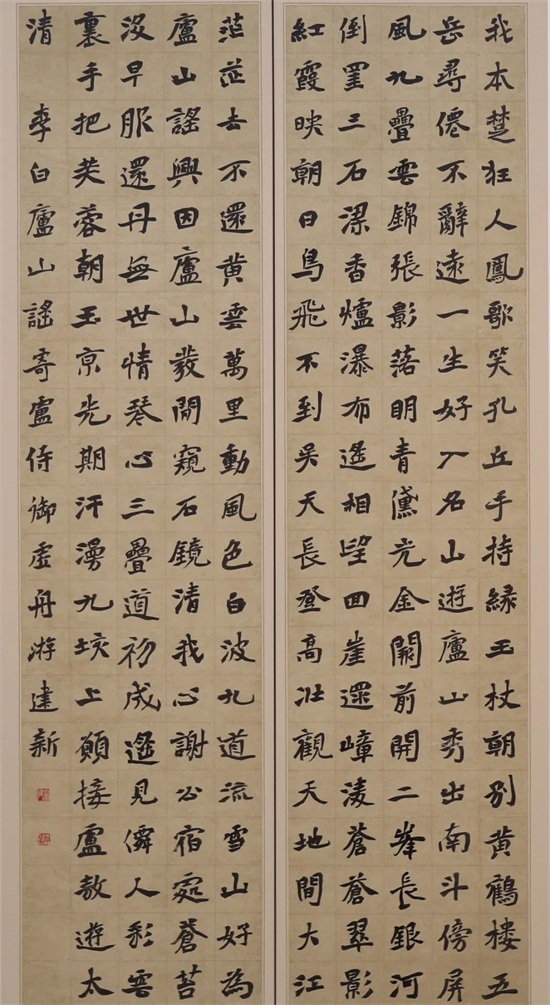 我本楚狂人鳳歌笑孔丘手持緑玉杖朝別黃鶴樓五
岳尋僊不辭遠一生好入名山遊廬山秀出南斗傍屏
風九疊雲錦張影落明青黛光金闕前開二峯長銀河
倒罣三石梁香爐瀑布遙相望回崖遝嶂淩蒼蒼翠影
紅霞映朝日鳥飛不到吳天長登高壯觀天地間大江
茫茫去不還黄雲萬里動風色白波九道流雪山好為
廬山謠興因廬山發閒窺石鏡清我心謝公宿處蒼苔
沒早服還丹無世情琴心三疊道初成遙見僊人彩雲
裏手把芙蓉朝玉京先期汗漫九垓上願接盧敖遊太
清 李白廬山謠寄盧侍御虛舟游建新